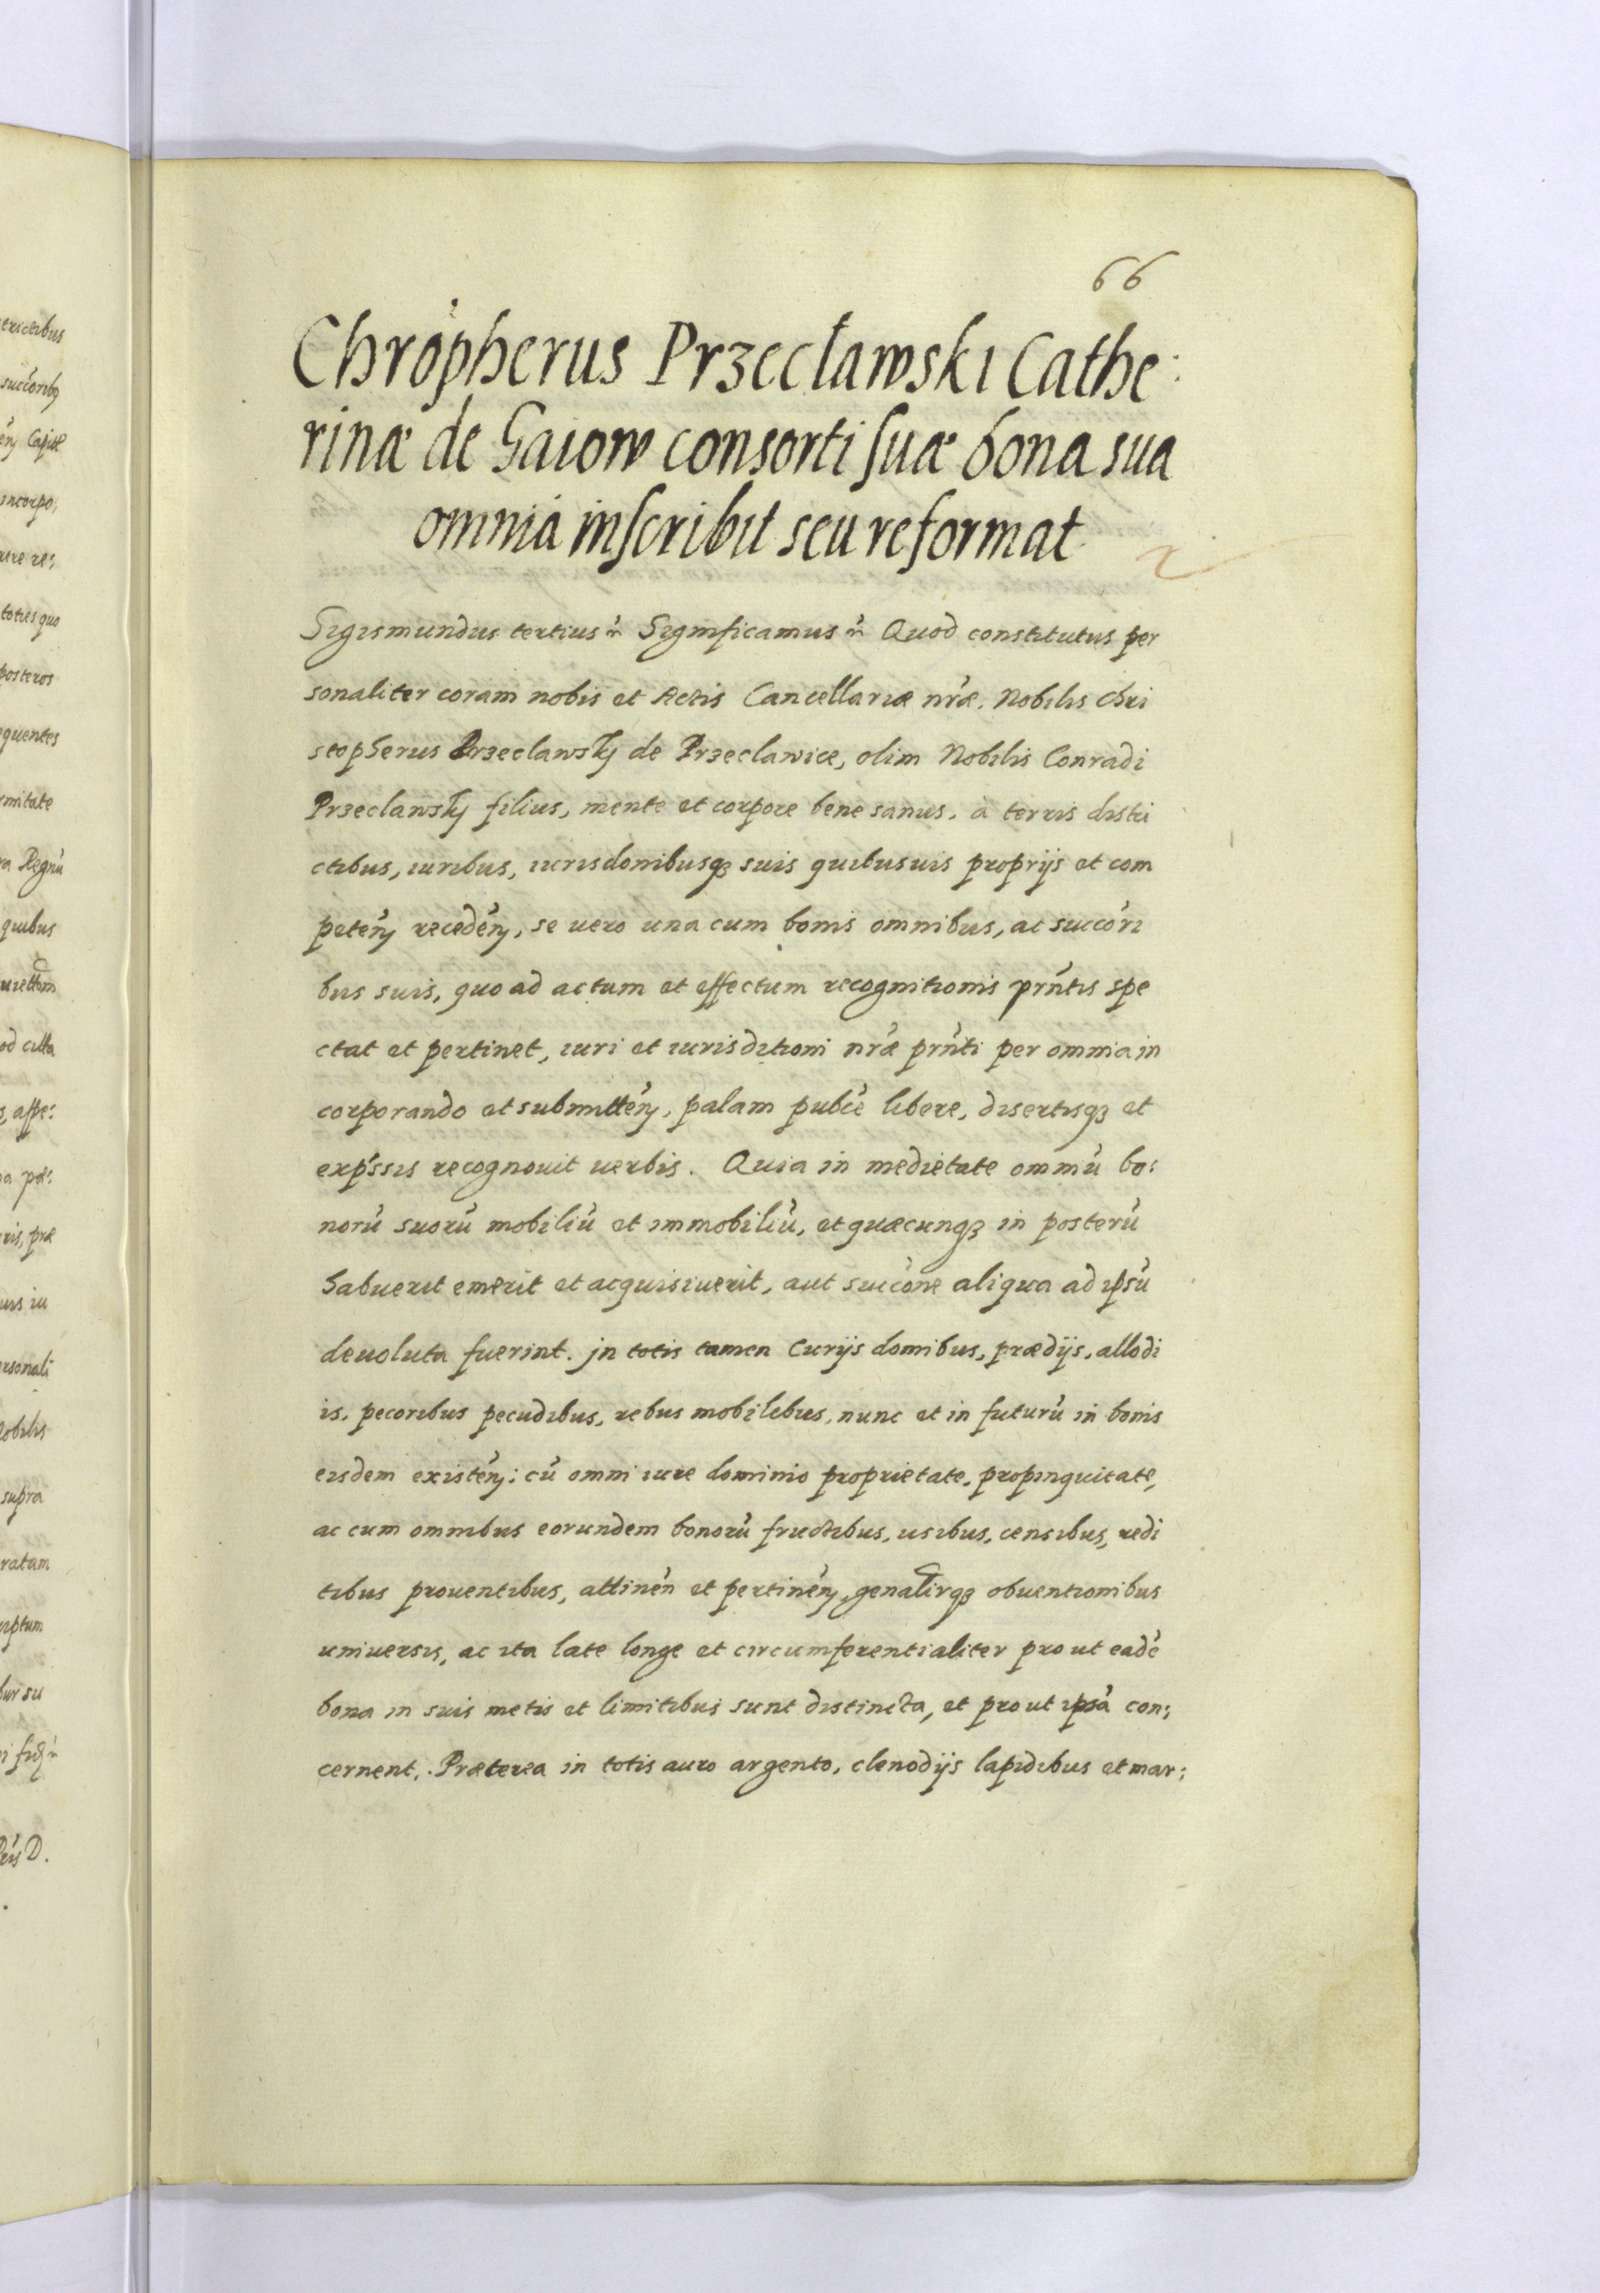 66
Chrõpherus Przecławski Cathe:
rinæ de Gaiow consorti suæ bona sua
omnia inscribit seu reformat
Sigismundus tertius Significamus Quod constitutus per
sonaliter coram nobis et Actis Cancellariæ nr̃æ. Nobilis Chri
stopherus Przeclawskÿ de Przeclawice, olim Nobilis Conradi
Przeclawskÿ filius, mente et corpore bene sanus. à terris distri
ctibus, iuribus, iurisdonibusq3 suis quibusuis proprijs et com
peteñ recedeñ, se uero una cum bonis omnibus, ac succõri
bus suis, quo ad actum et effectum recognitionis prñtis spe
ctat et pertinet, iuri et iurisditioni nr̃æ prñti per omnia in
corporando et submitteñ, palam pubcẽ libere, disertisq3 et
exp̃ssis recognouit uerbis. Quia in medietate omniũ bo:
norũ suorũ mobiliũ et immobiliũ, et quæcunq3 in posterũ
habuerit emerit et acquisiuerit, aut succõne aliqua ad ipsũ
deuoluta fuerint. jn totis tamen Curijs domibus, prædijs, allodi
is, pecoribus pecudibus, rebus mobilibus, nunc et in futurũ in bonis
eisdem existeñ: cũ omni iure dominio proprietate, propinquitate,
ac cum omnibus eorundem bonorũ fructibus, usibus, censibus, redi
tibus prouentibus, attineñ et pertineñ, genalirq3 obuentionibus
uniuersis, ac ita late longe et circumferentialiter prout eadẽ
bona in suis metis et limitibus sunt distincta, et prout ipsã con:
cernent. Præterea in totis auro argento, clenodijs lapidibus et mar: